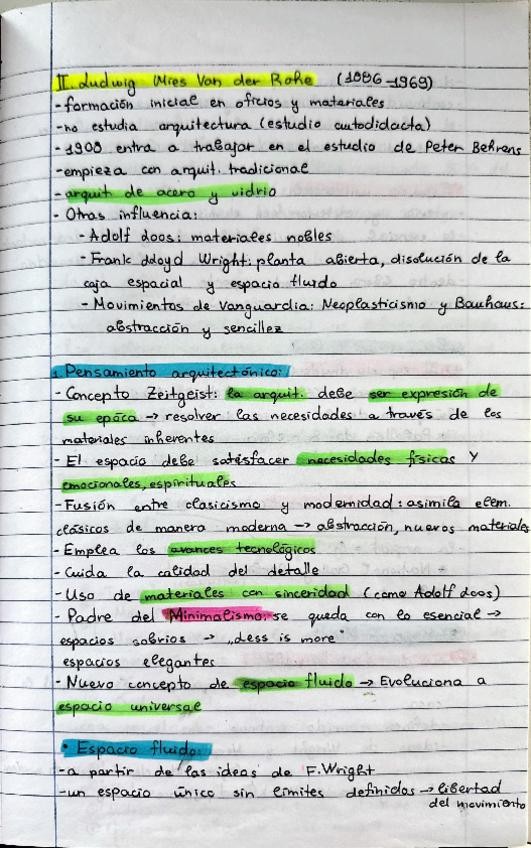 II. Ludwig Mies Van der Rohe (1886-1969)
- formación inicial en oficios y materiales
- no estudia arquitectura (estudio autodidacta)
- 1908 entra a trabajar en el estudio de Peter Behrens
- empieza con arquit. tradicional
- arquit de acero y vidrio
- Otras influencia:
- Adolf Loos: materiales nobles
- Frank Lloyd Wright: planta abierta, disolución de la
caja espacial y espacio fluido
- Movimientos de Vanguardia: Neoplasticismo y Bauhaus:
abstracción y sencillez
1. Pensamiento arquitectónico:
- Concepto Zeitgeist: la arquit. debe ser expresión de
su época → resolver las necesidades a través de los
materiales inherentes
- El espacio debe satisfacer necesidades físicas y
emocionales, espirituales
- Fusión entre clasicismo y modernidad: asimila elem.
clásicos de manera moderna → abstracción, nuevos materiales
- Emplea los avances tecnológicos
- Cuida la calidad del detalle
- Uso de materiales con sinceridad (como Adolf Loos)
- Padre del Minimalismo: se queda con lo esencial →
espacios sobrios → „Less is more"
espacios elegantes
- Nuevo concepto de espacio fluido → Evoluciona a
espacio universal
• Espacio fluido:
- a partir de las ideas de F. Wright
- un espacio único sin límites definidos → libertad
del movimiento